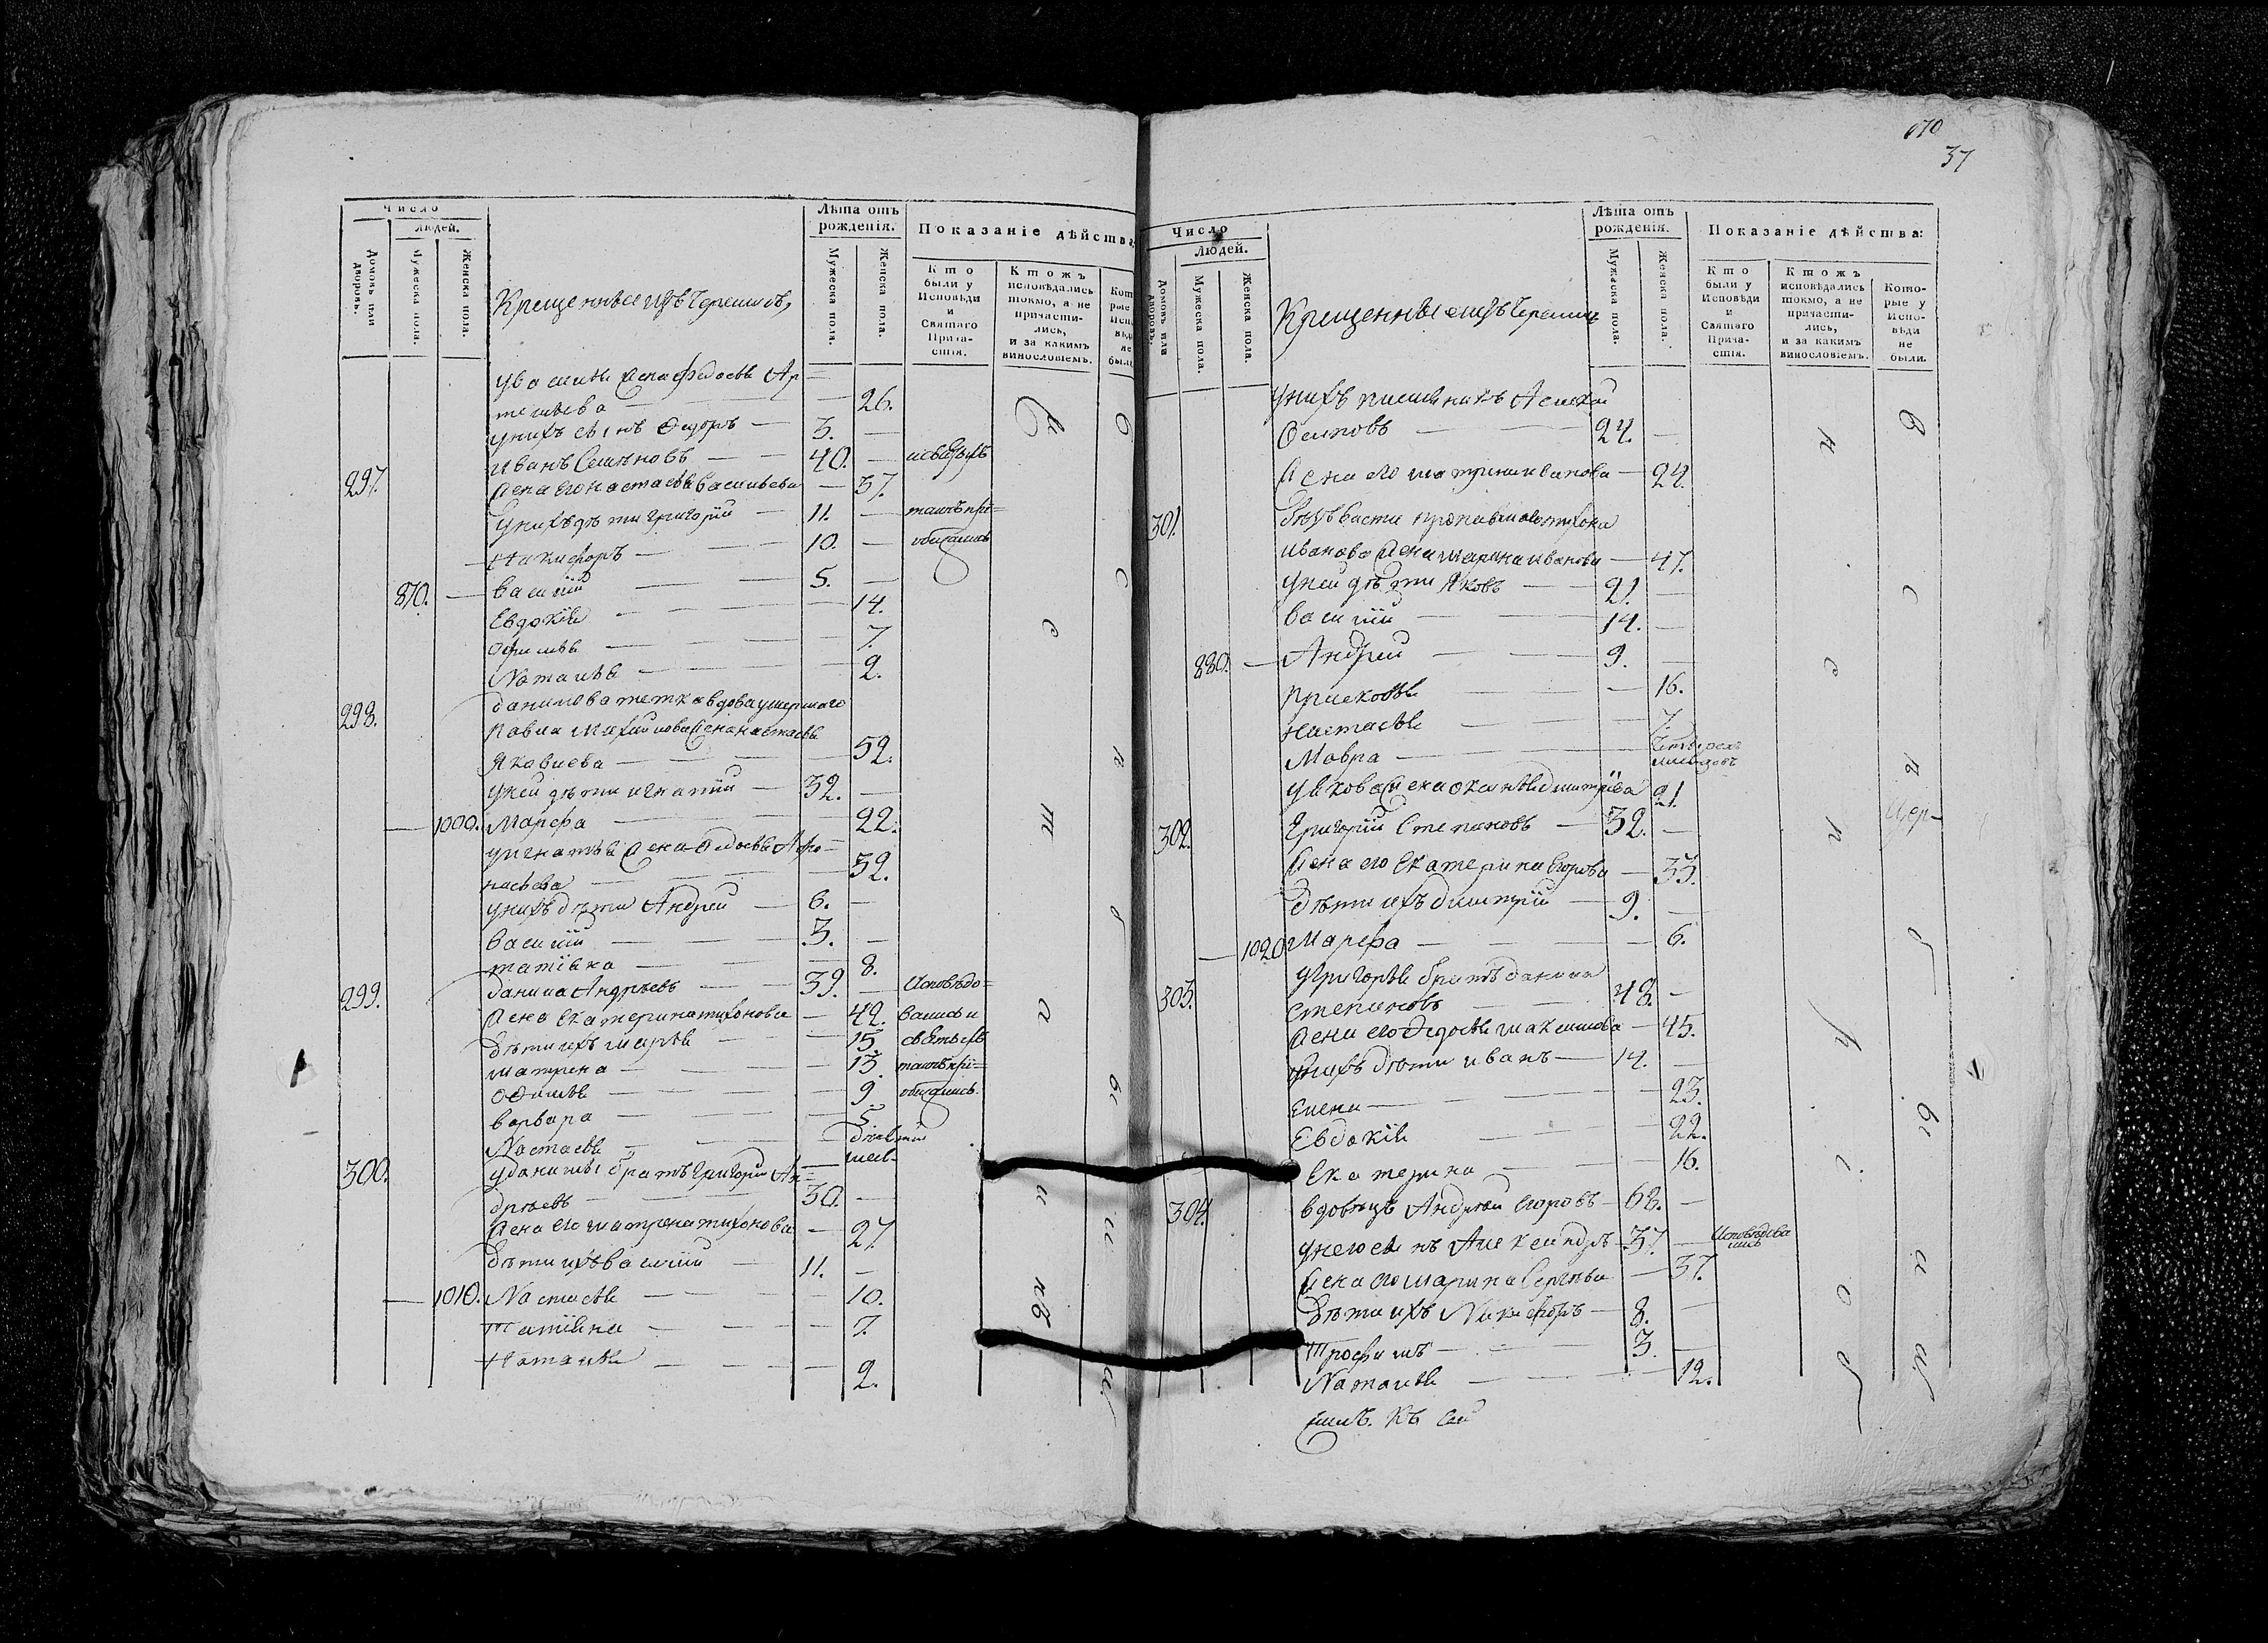 Число
Людей.
Домовъ или дворовъ.
Мужеска пола.
Женска пола.
Крещенные изъ Черемисъ,
Лѣта отъ рожденія.
Мужеска пола.
Женска пола.
Показаніе дѣйства
Кто были у Исповѣди и Святаго Причастія.
Ктожъ исповѣдались токмо, а не причастились, и за какимъ винословіемъ.
жена Федосья Ар
темьева — 26.
у нихъ сынъ Федоръ — 3. —
297. Иванъ Семеновъ — 40. —
жена его Настасья Васильева — 37.
у нихъ дѣти Григорій — 11. —
Никифоръ — 10. —
870. — Василій — 5. —
Евдокія — 14.
Офимья — 7.
Наталья — 2.
298. Данилова тетка вдова умершаго
Павла Михайлова жена Настасья
Яковлева — 52.
у ней дѣти Игнатій — 32. —
— 1000. Марфа — 22.
у Игнатья жена Федосья Афо=
насьева — 32.
у нихъ дѣти Андрей — 6. —
Василій — 3. —
Татіана — 8.
299. Данила Андреевъ — 39. — Исповѣдо=
жена Екатерина Тихонова — 42. вались и
Дѣти ихъ Марья — 15. святыхъ
Матрена — 13. таинъ прі=
Офимья — 9. общались.
Варвара — 5.
Настасья —
300. у Данилы братъ Григорій Ан=
дреевъ — 30. —
жена его Матрена Тихонова — 27
Дѣти ихъ Василій — 11. —
— 1010. Настасья — 10.
Татіана — 7.
Наталья — 2.
670
37
Число
Людей.
Домовъ или дворовъ.
Мужеска пола.
Женска пола.
Крещенные изъ Черемис
Лѣта отъ рожденія.
Мужеска пола.
Женска пола.
Показаніе дѣйства:
Кто были у Исповѣди и Святаго Причастія.
Ктожъ исповѣдались токмо, а не причастились, и за какимъ винословіемъ.
Которые у Исповѣди не были.
у нихъ племянникъ Алексей
Осиповъ — 24. —
жена его Матрена Иванова — 24.
301.
Иванова жена Марина Иванова — 47.
у ней дѣти Яковъ — 21. —
Василій — 14. —
880. — Андрей — 9. —
Прасковья — 16.
Настасья — 7.
Мавра — четырехъ месяцовъ
у Якова жена Дмитріева 21.
302. Григорій Степановъ — 32. —
жена его Екатерина Егорова — 33.
Дѣти ихъ Дмитрій — 9. —
— 1020 Марфа — 6.
303. у Григорья братъ Данила
Степановъ — 48. —
жена его Федосья Максимова — 45.
у нихъ дѣти Иванъ — 14. —
Елена — 23.
Евдокія — 22.
Екатерина — 16.
304. вдовецъ Андрей Егоровъ — 68. —
у него сынъ Александръ — 37. — Исповѣдова
лись
жена его Марина Сергеева — 37.
Дѣти ихъ Никифоръ — 8. —
Трофимъ — 3. —
Наталья — 12.